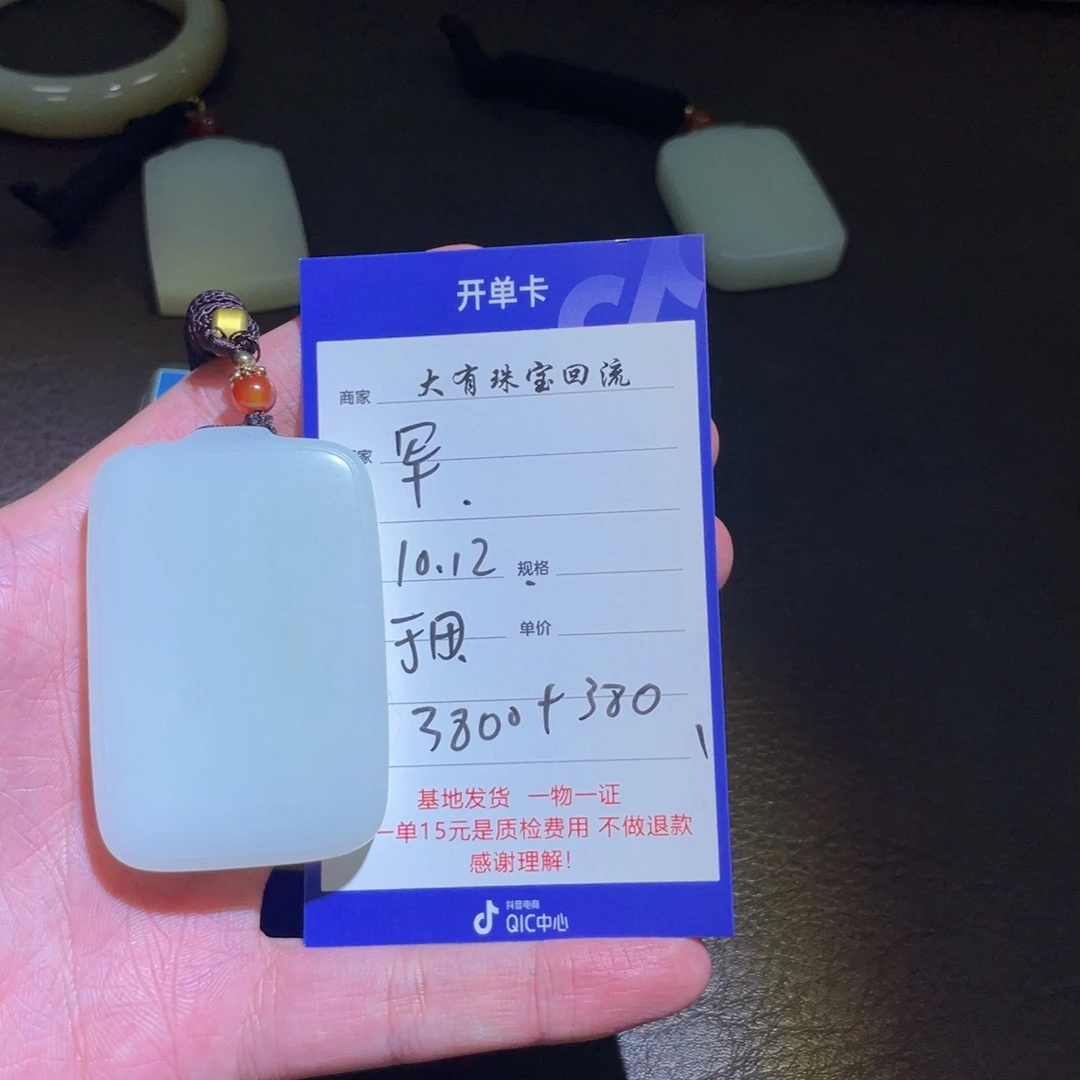 开单卡
商家 大有珠宝回流
家 军.
10.12 规格
于田 单价
3800+380
基地发货 一物一证
一单15元是质检费用 不做退款
感谢理解!
抖音电商
QIC中心